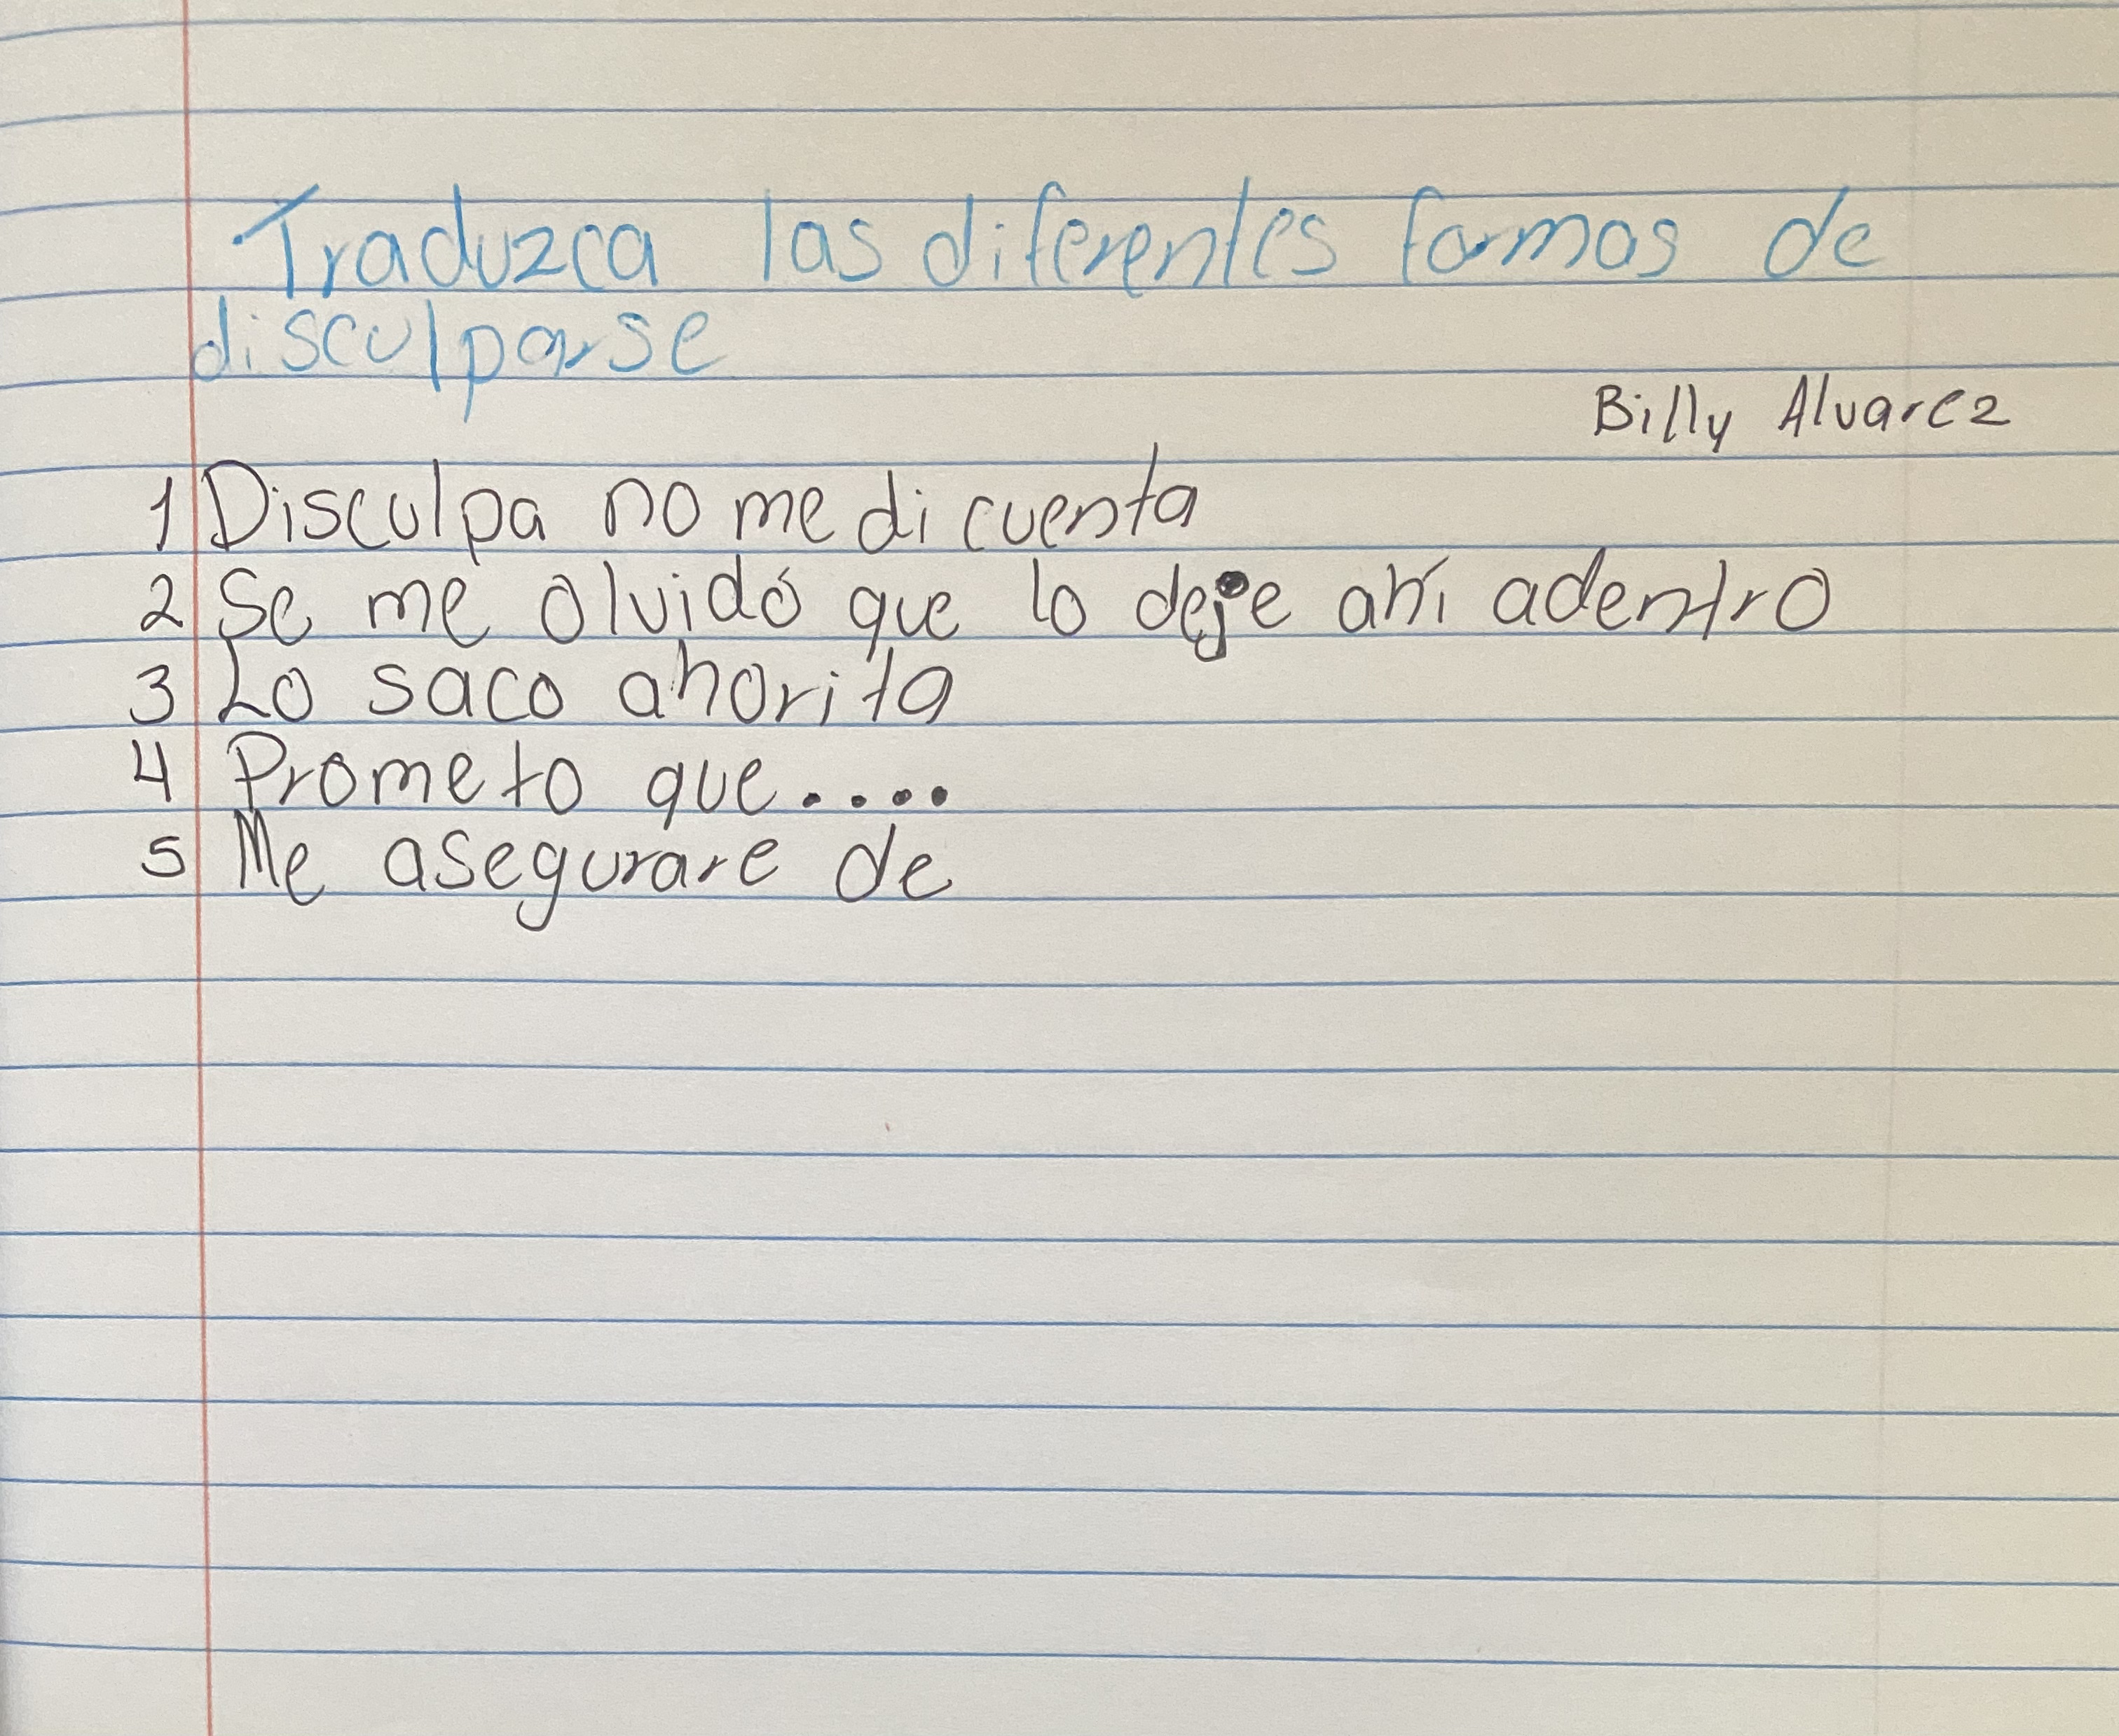 Traduzca las diferentes formas de
disculparse
Billy Alvarez
1 Disculpa no me di cuenta
2 Se me olvidó que lo deje ahí adentro
3 Lo saco ahorita
4 Prometo que....
5 Me asegurare de